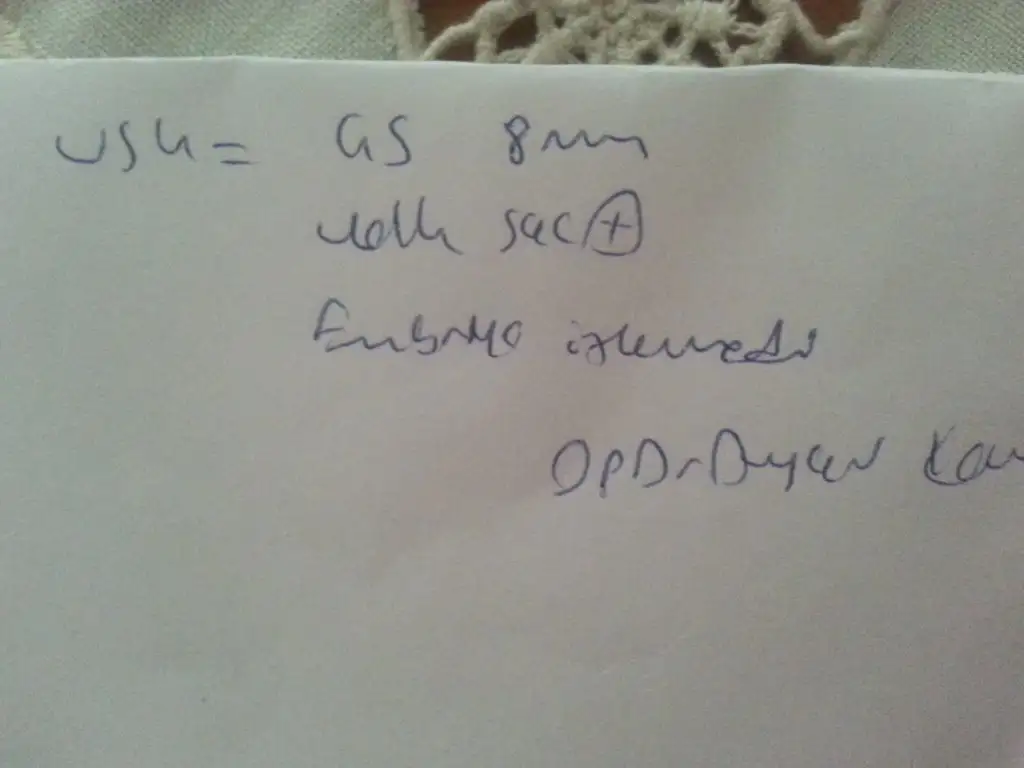 USG= GS 8mm
yolk sac (+)
Embriyo izlenmedi
Op Dr